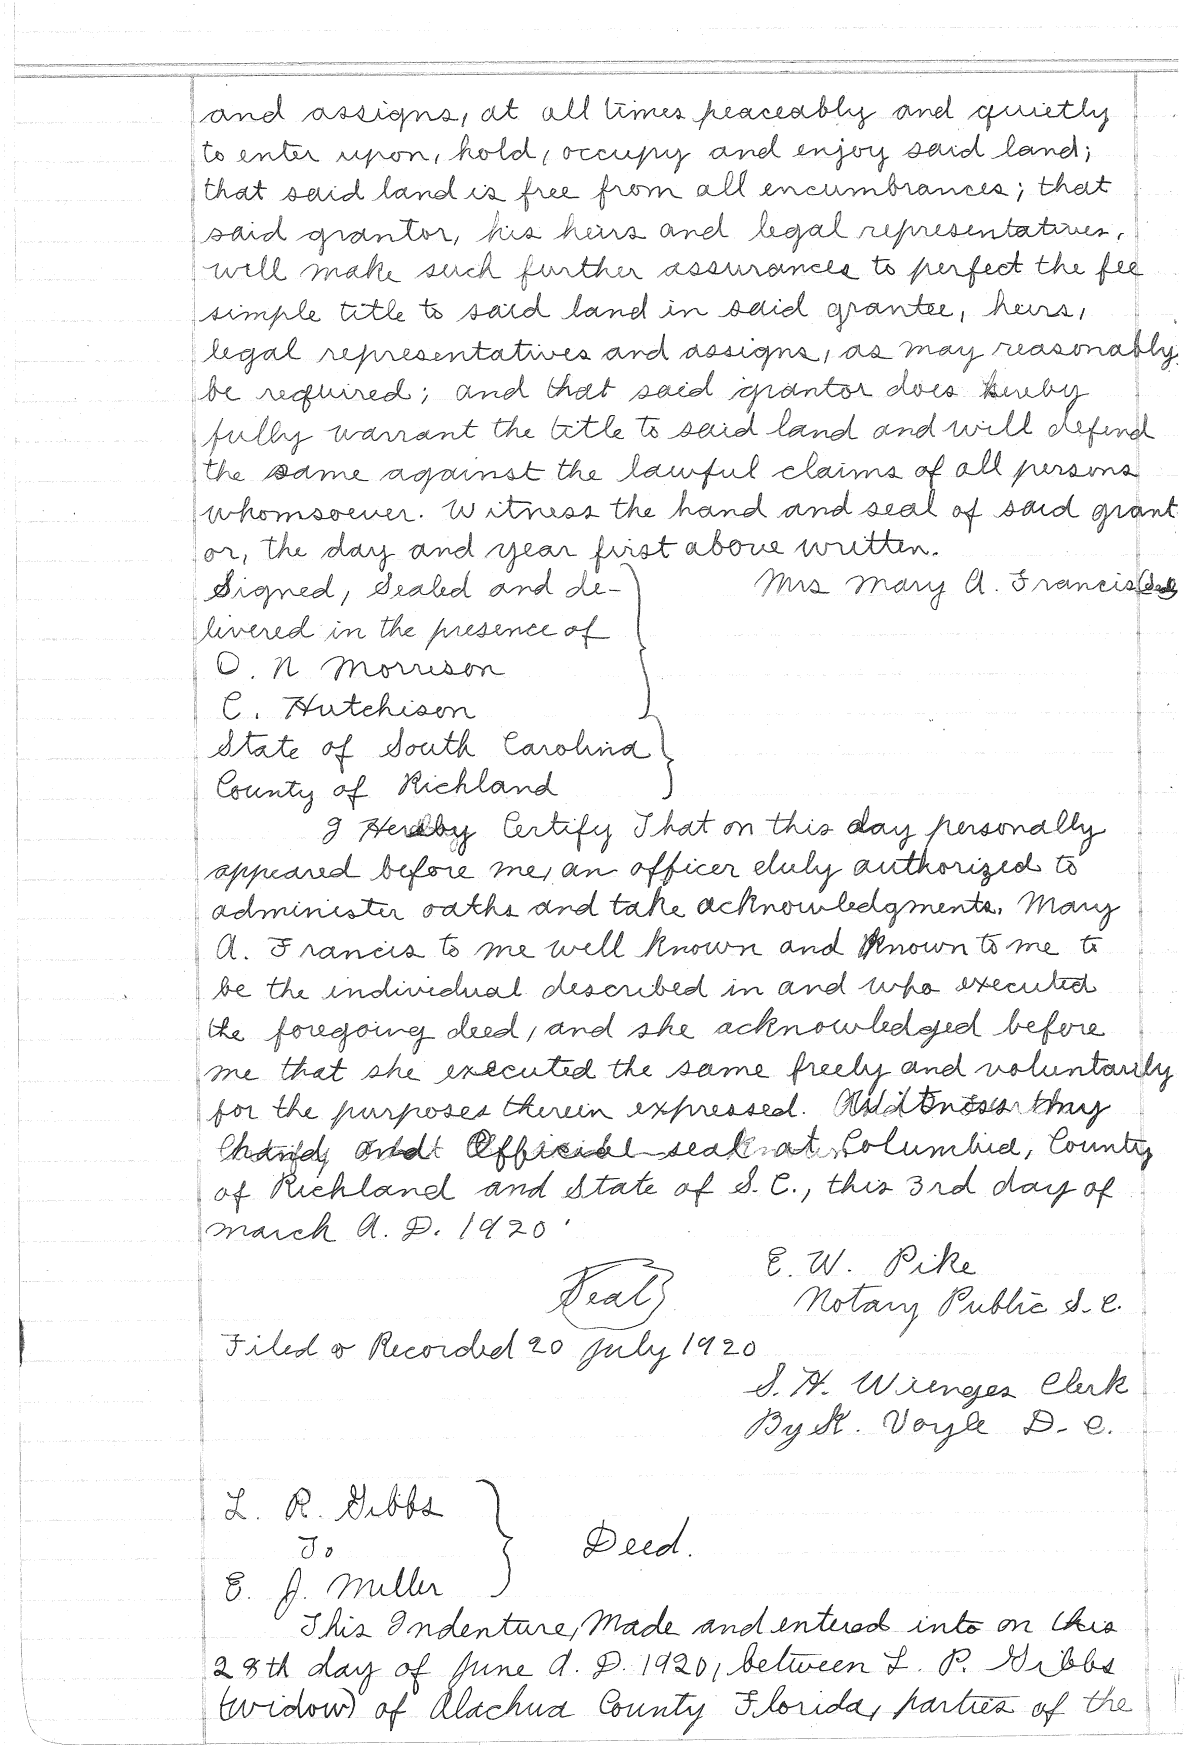 and assigns, at all times peaceably and quietly
to enter upon, hold, occupy and enjoy said land;
that said land is free from all encumbrances; that
said grantor, his heirs and legal representatives,
will make such further assurances to perfect the fee
simple title to said land in said grantee, heirs,
legal representatives and assigns, as may reasonably
be required; and that said grantor does hereby
fully warrant the title to said land and will defend
the same against the lawful claims of all persons
whomsoever. Witness the hand and seal of said grant
or, the day and year first above written.
Signed, Sealed and de- Mrs Mary A. Francis (Seal)
livered in the presence of
O. N Morrison
C. Hutchison
State of South Carolina
County of Richland
I Hereby Certify That on this day personally
appeared before me, an officer duly authorized to
administer oaths and take acknowledgments, Mary
A. Francis to me well known and known to me to
be the individual described in and who executed
the foregoing deed, and she acknowledged before
me that she executed the same freely and voluntarily
for the purposes therein expressed. Witness my
hand and Official seal at Columbia, County
of Richland and State of S. C., this 3rd day of
March A. D. 1920
E. W. Pike
Seal Notary Public S. C.
Filed & Recorded 20 July 1920
S. H. Wienges Clerk
By K. Voyle D. C.
L. R. Gibbs
To Deed.
E. J. Miller
This Indenture, Made and entered into on this
28th day of June A. D. 1920, between L. P. Gibbs
(widow) of Alachua County Florida, parties of the